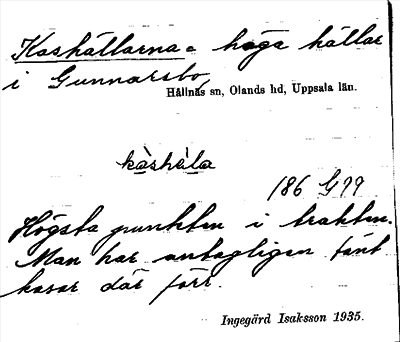 Kashällarna = höga hällar
i Gunnarsbo,
Hållnäs sn, Olands hd, Uppsala län.
kàshä̀la
186 G99
Högsta punkten i trakten.
Man har antagligen tänt
kasar där förr.
Ingegärd Isaksson 1935.